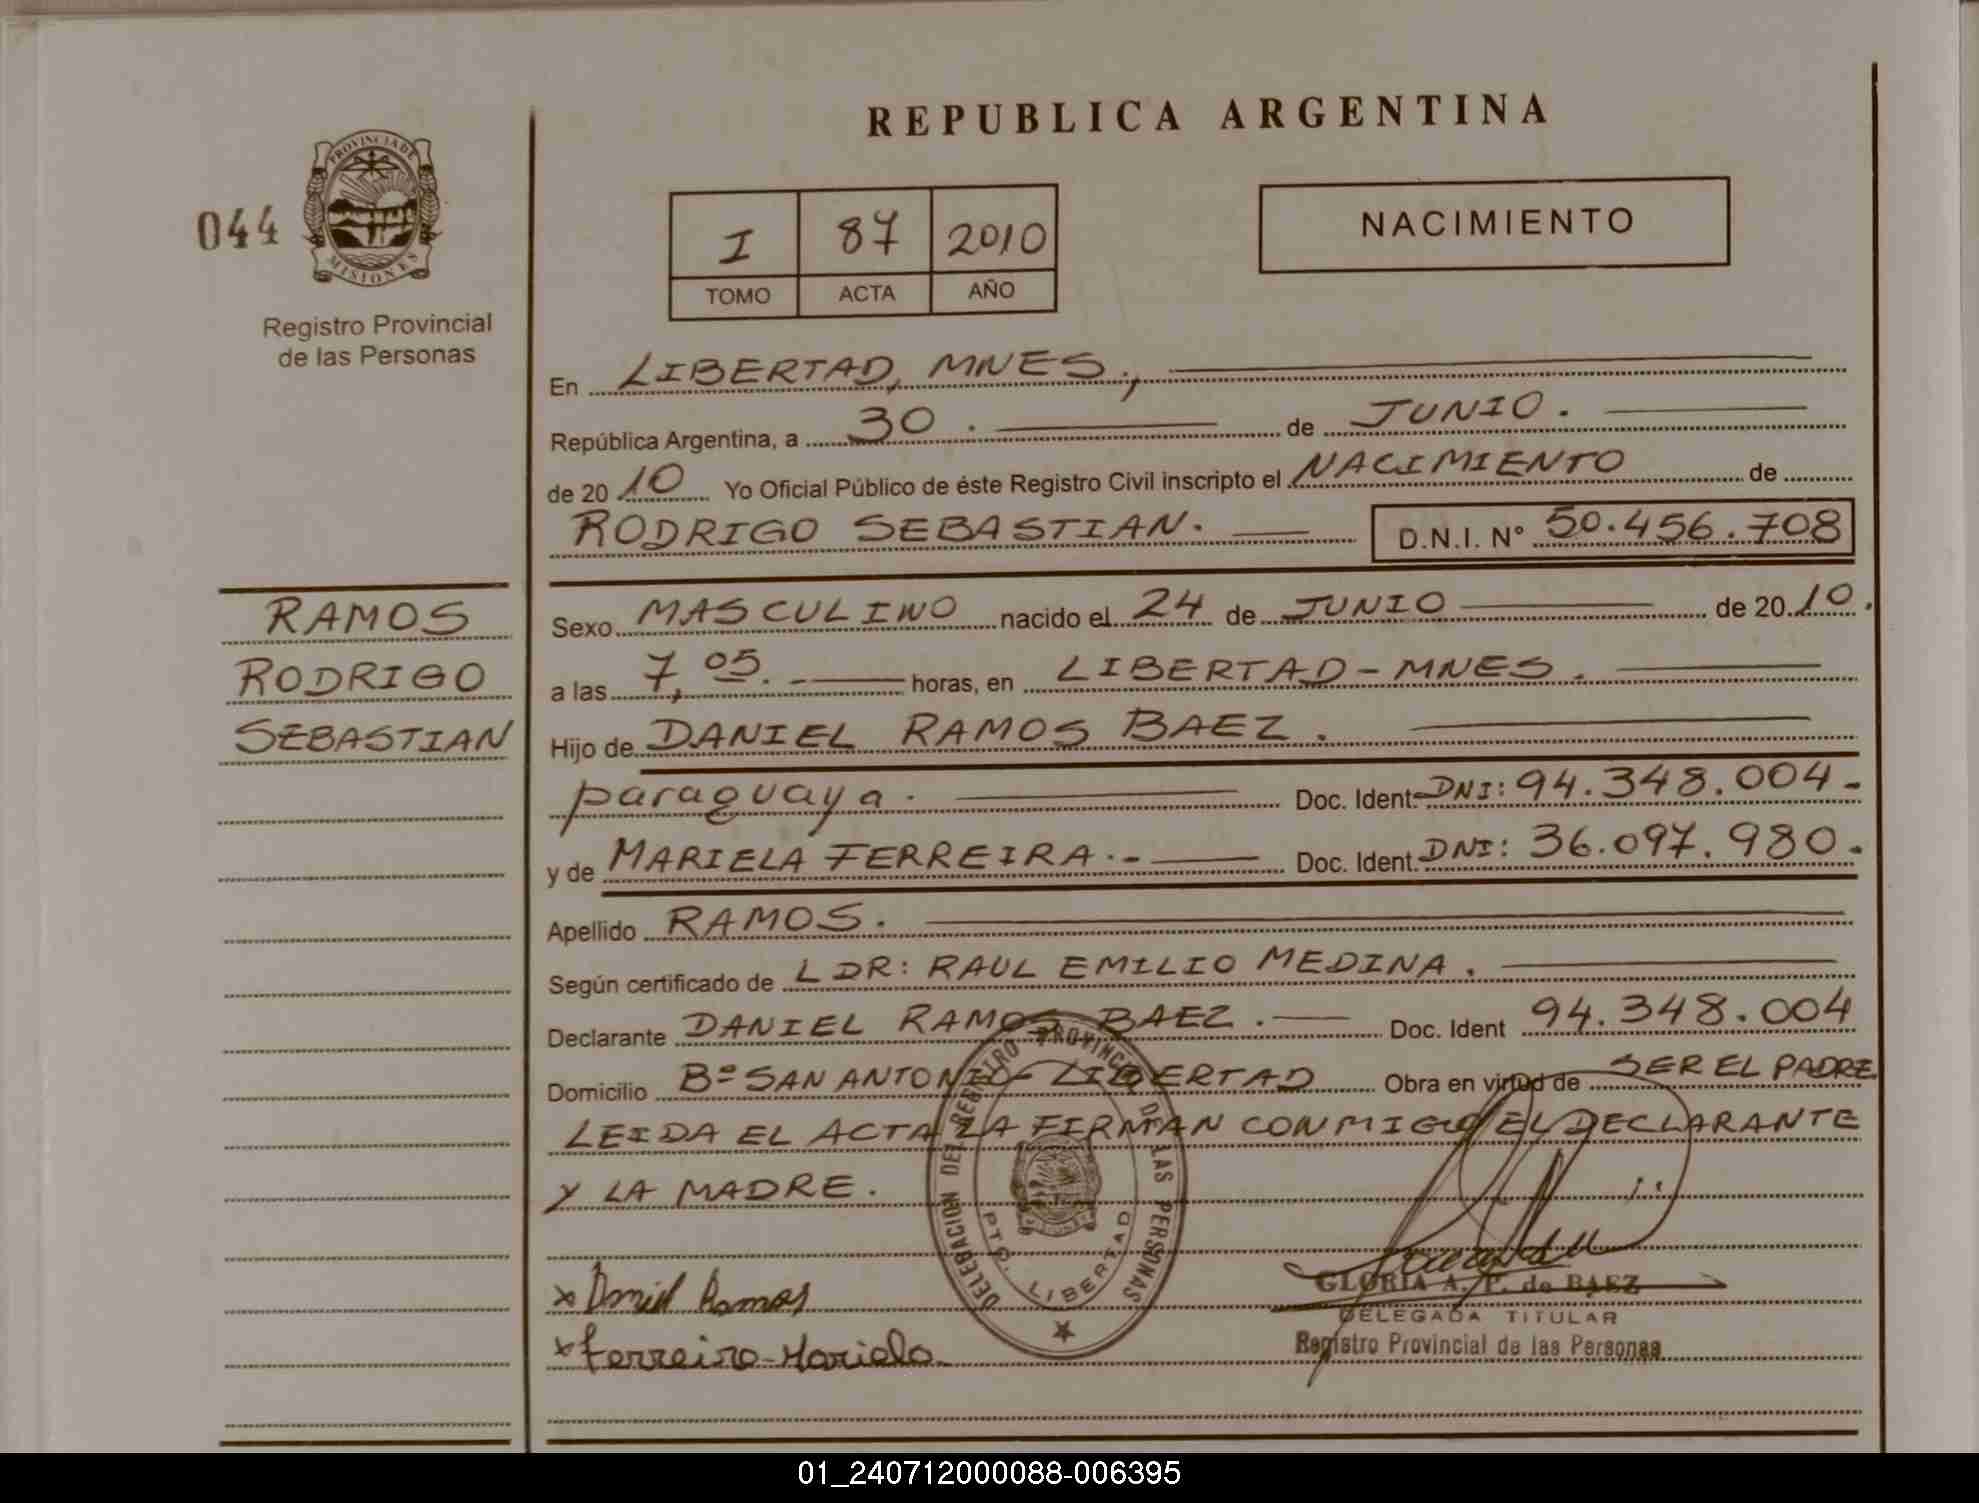 REPUBLICA ARGENTINA
044
PROVINCIA DE
MISIONES
Registro Provincial
de las Personas
I 87 2010
TOMO ACTA AÑO
NACIMIENTO
En LIBERTAD, MNES.,
República Argentina, a 30. de JUNIO.
de 2010 Yo Oficial Público de éste Registro Civil inscripto el NACIMIENTO de
RODRIGO SEBASTIAN. D.N.I. N° 50.456.708
RAMOS
RODRIGO
SEBASTIAN
Sexo MASCULINO nacido el 24 de JUNIO de 2010.
a las 7,05. horas, en LIBERTAD-MNES.
Hijo de DANIEL RAMOS BAEZ.
paraguaya. Doc. Ident. DNI: 94.348.004.-
y de MARIELA FERREIRA.- Doc. Ident. DNI: 36.097.980.-
Apellido RAMOS.
Según certificado de L DR: RAUL EMILIO MEDINA.
Declarante DANIEL RAMOS BAEZ. Doc. Ident 94.348.004
Domicilio Bº SAN ANTONIO - LIBERTAD Obra en virtud de SER EL PADRE
LEIDA EL ACTA LA FIRMAN CONMIGO EL DECLARANTE
Y LA MADRE.
DELEGACION DEL REGISTRO PROVINCIAL DE LAS PERSONAS
PTO. LIBERTAD
x Daniel Ramos
x Ferreira Mariela
GLORIA A. P. de BAEZ
DELEGADA TITULAR
Registro Provincial de las Personas
01_240712000088-006395